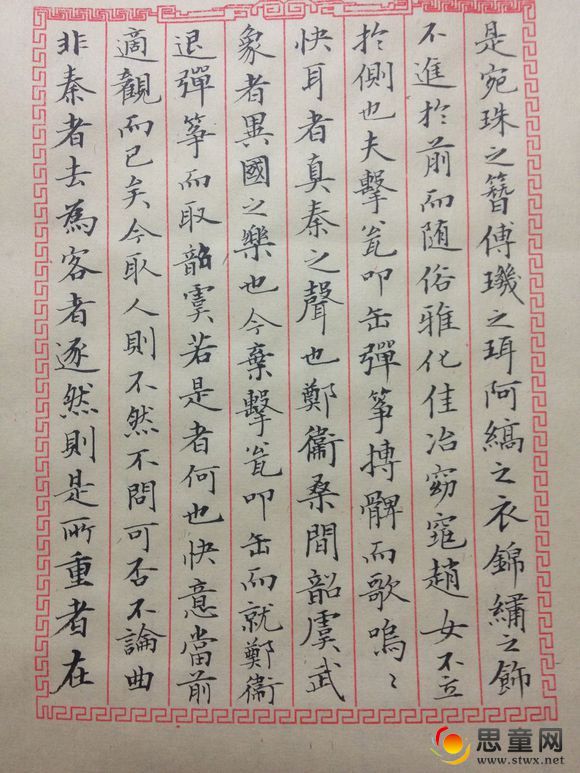 是宛珠之簪傅璣之珥阿縞之衣錦繡之飾
不進於前而随俗雅化佳冶窈窕趙女不立
於側也夫擊瓮叩缶彈筝搏髀而歌嗚〻
快耳者真秦之聲也鄭衞桑間韶虞武
象者異國之樂也今棄擊瓮叩缶而就鄭衞
退彈筝而取韶虞若是者何也快意當前
適觀而已矣今取人則不然不問可否不論曲
非秦者去為客者逐然則是所重者在
思童网
www.stwx.net